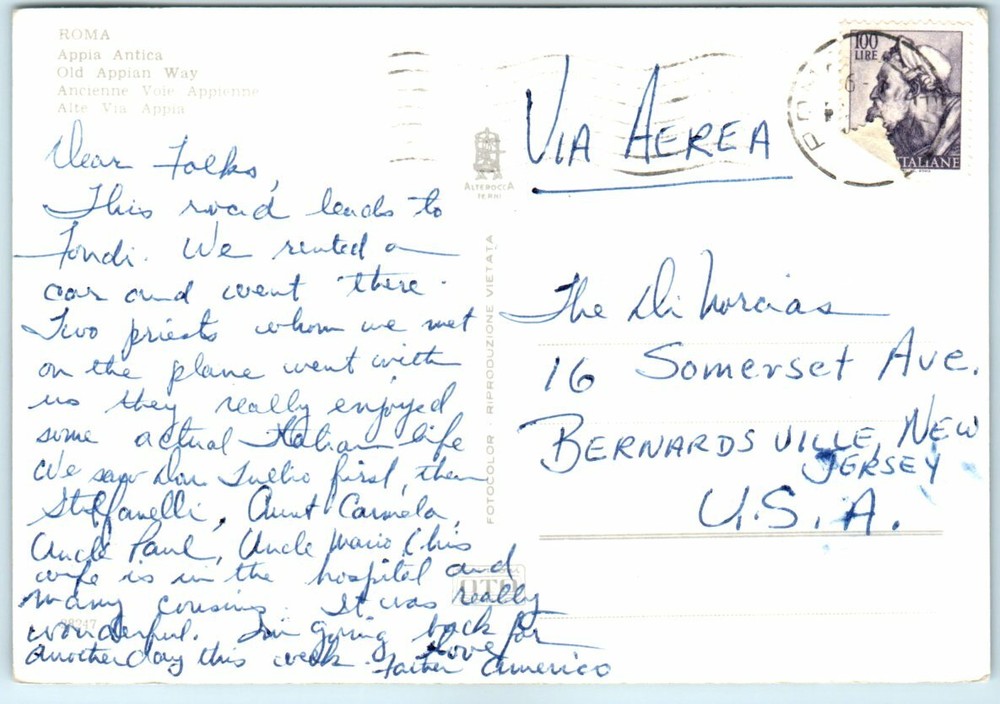 ROMA
Appia Antica
Old Appian Way
Ancienne Voie Appienne
Alte Via Appia
Dear Folks,
This road leads to
Fondi. We rented a
car and went there.
Two priests whom we met
on the plane went with
us they really enjoyed
some actual Italian life
We saw Don Tullio first, then
Steffanelli, Aunt Carmela,
Uncle Paul, Uncle Mario (his
wife is in the hospital and
many cousins. It was really
wonderful. I'm going back for
another day this week. Love
Father Americo
88247
ALTEROCCA
TERNI
FOTOCOLOR - RIPRODUZIONE VIETATA
VIA AEREA
100
LIRE
ITALIANE
The Di Norcias
16 Somerset Ave.
BERNARDSVILLE, NEW
JERSEY
U.S.A.